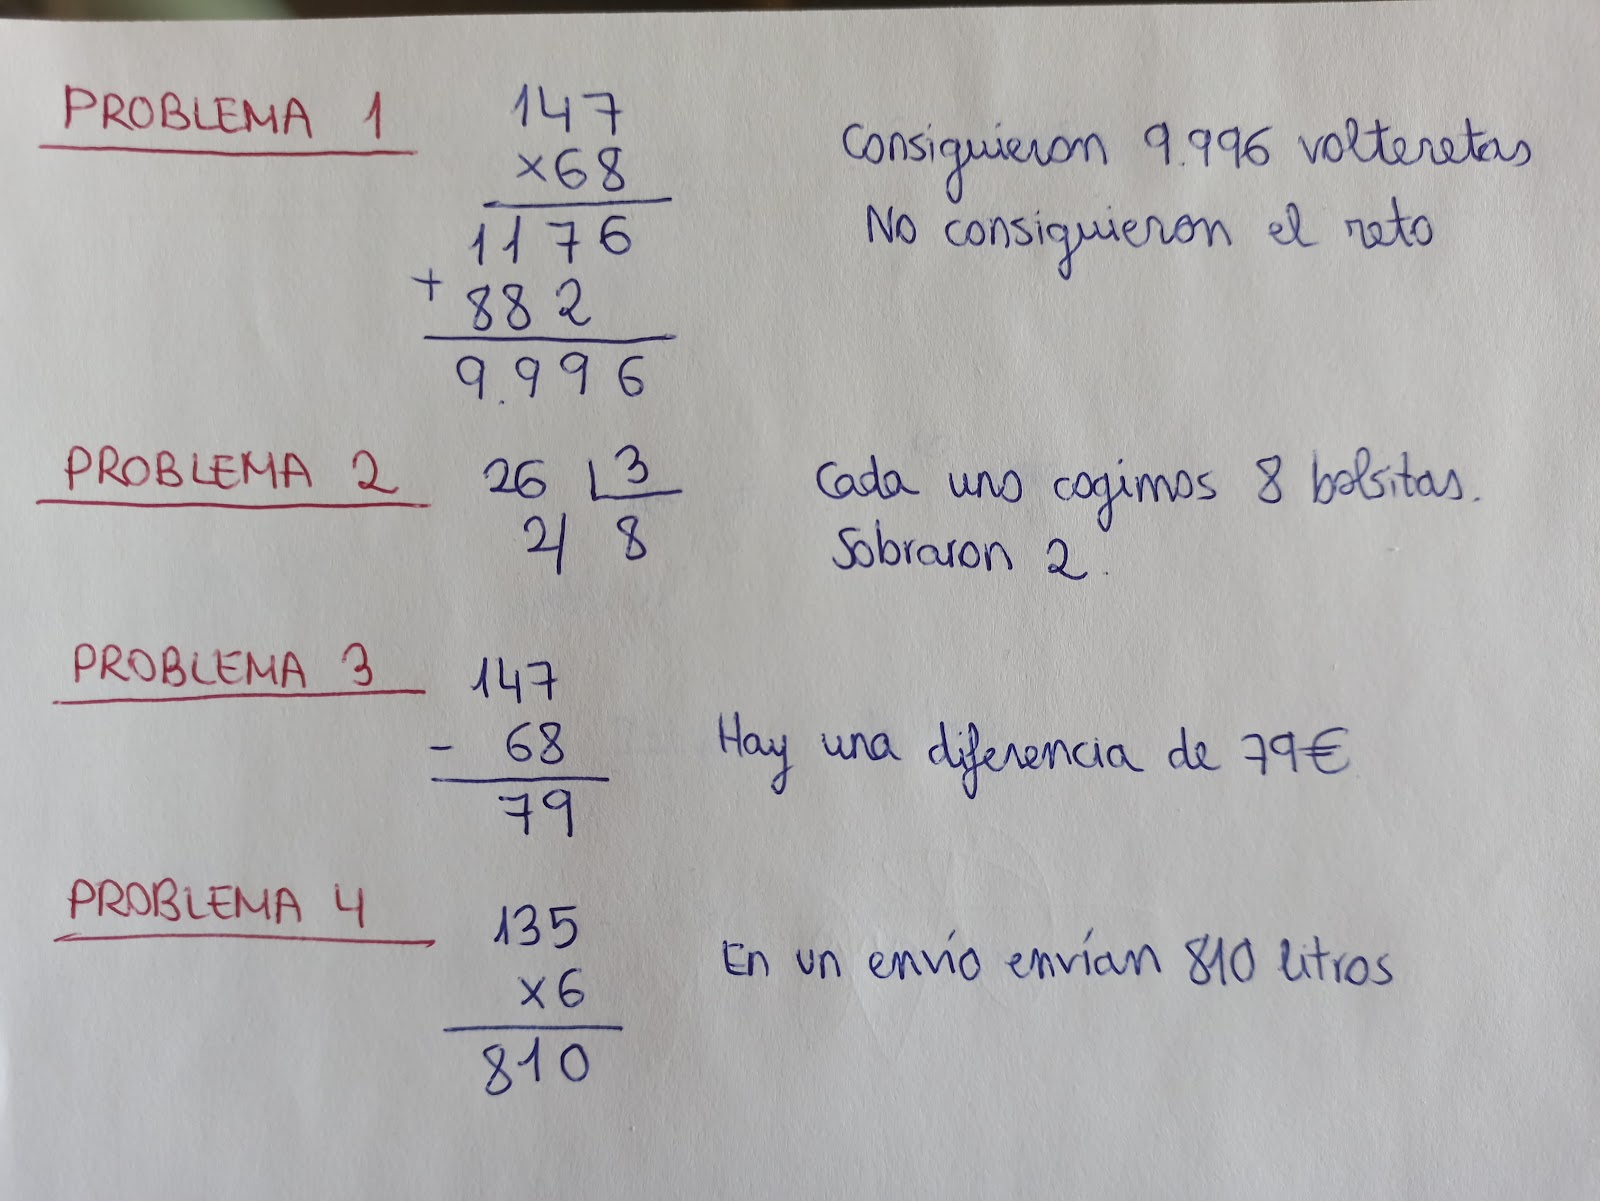 PROBLEMA 1
147
x68
1176
+ 882
9.996
Consiguieron 9.996 volteretas
No consiguieron el reto
PROBLEMA 2
26 3
2 8
Cada uno cogimos 8 bolsitas.
Sobraron 2.
PROBLEMA 3
147
- 68
79
Hay una diferencia de 79€
PROBLEMA 4
135
x6
810
En un envío envían 810 litros